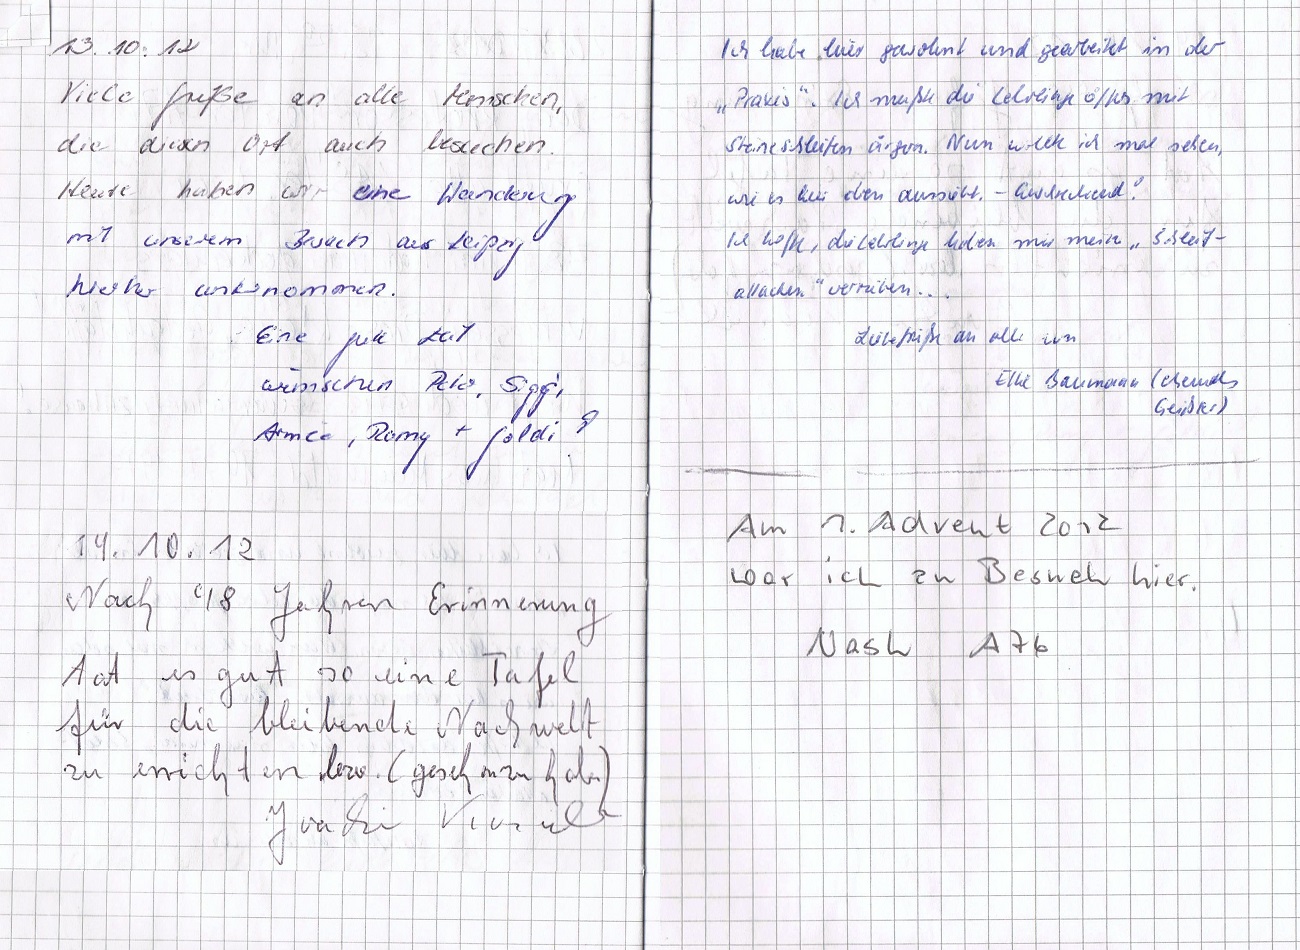 13.10.12
Viele Grüße an alle Menschen,
die diesen Ort auch besuchen.
Heute haben wir eine Wanderung
mit unserem Besuch aus Leipzig
hierher unternommen.
Eine gute Zeit
wünschen Peter, Siggi,
Romy + Goldi!
14.10.12
Nach 48 Jahren Erinnerung
tat es gut so eine Tafel
für die bleibende Nachwelt
zu errichten bzw. (gesehen zu haben)
Ich habe hier gewohnt und gearbeitet in der
„Praxis“. Ich mußte die Lehrlinge öfters mit
Steineschleifen ärgern. Nun wollte ich mal sehen,
wie es hier oben aussieht. –
Ich hoffe, die Lehrlinge haben mir meine „Schleif-
attacken“ verziehen...
Liebe Grüße an alle von
Elke Baumann (ehemals
Geißler)
Am 1. Advent 2012
war ich zu Besuch hier.
Nash A76